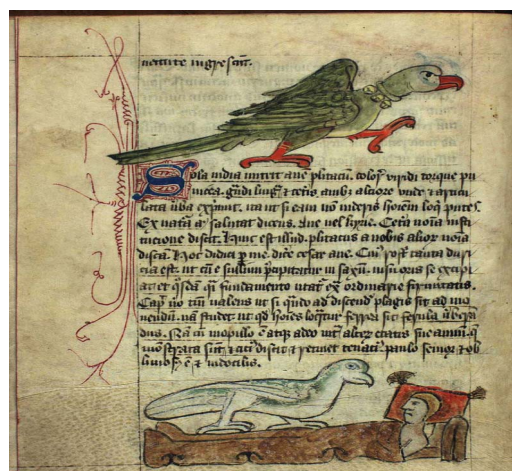 uetitute nigrescūt.
Sola india mittit aue psitacū. coloř viridi torque pu
nicea. gʼndi lingʼ & ceťis auibʒ latiore vnde & articu
lata űba exp̄mit. ita ut si eam nō uideris hoīem loqʼ putes.
Ex natā aʼ salutat dicens. Aue uel kyre. Ceťa noīa insti
tucione discit. Hinc est illud. psitacus a nobis alioř noīa
discā. Hoc didici p me. diče cesar aue. Cuiʼ rostʼ tanta duri
cia est. ut cū e sullimi p̄cipitatur in saxū. nisu oris se excipi
at et qʼdā qʼi fundamento utatʼ exordinarie firmitatis.
Capʼ ṽo tā ualens ut si qʼndo ad discend plagis sit ad mo
nendū. nā studet ut qď hoīes loqʼtur ferrea sit ferula űberā
dus. Nā in pullo ē atque adeo
mōstrata sūt. & citiʼ discit & retinet tenaciʼ. paulo senior & ob
liuiosʼ ē & indocilis.